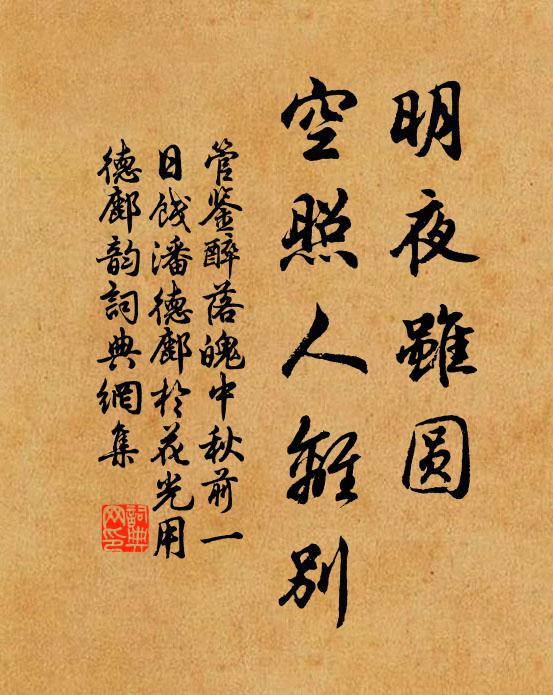 明夜雖圆
空照人離别
管鉴醉落魄中秋前一
日餞潘德鄜於花光用
德鄜韵詞典網集
詞典网印